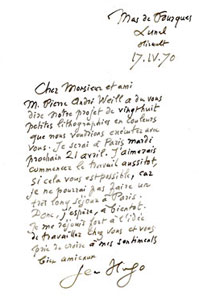 Mas de Fourques
Lunel
Hérault
17.IV.70
Cher Monsieur et ami
M. Pierre André Weill a dû vous
dire notre projet de vingt huit
petites lithographies en couleurs
que nous voudrions exécuter avec
vous. Je serai à Paris mardi
prochain 21 avril. J'aimerais
commencer le travail aussitôt,
si cela vous est possible, car
je ne pourrai pas faire un
très long séjour à Paris.
Donc, j'espère, à bientôt.
Je me réjouis fort à l'idée
de travailler chez vous et vous
prie de croire à mes sentiments
bien amicaux
Jean Hugo